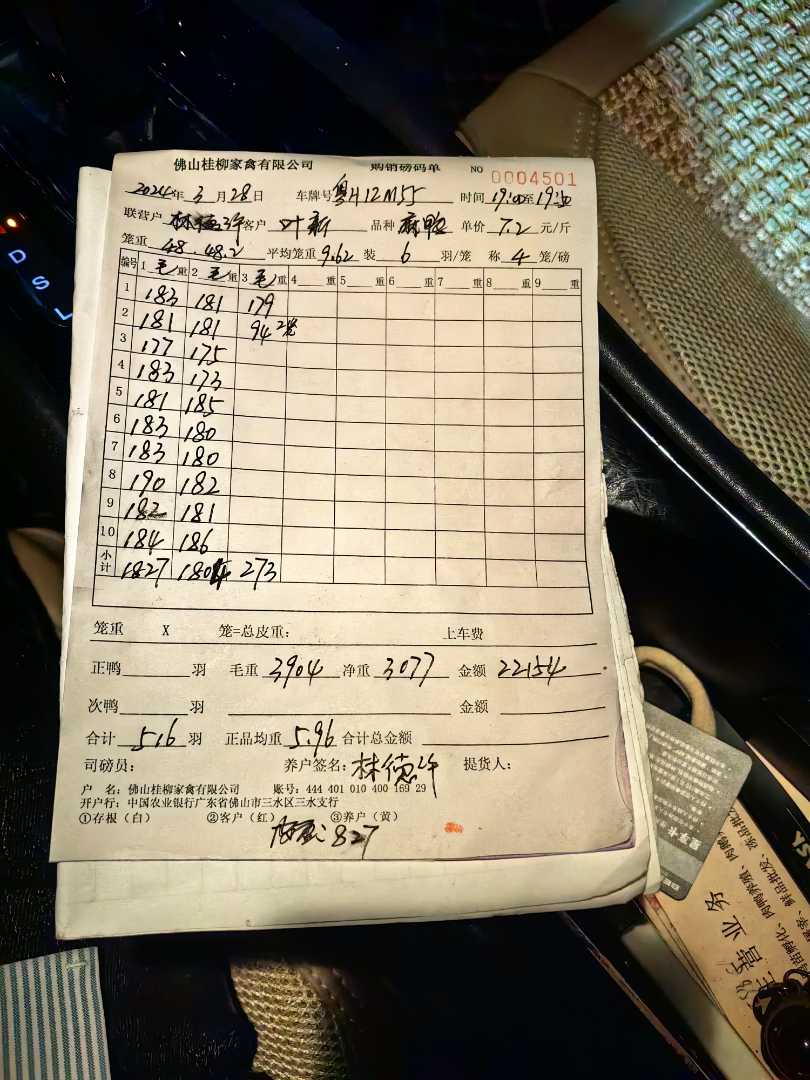 佛山桂柳家禽有限公司 购销磅码单 NO 0004501
2024年 3 月 28 日 车牌号 粤H12M55 时间 19:00至19:50
联营户 林德许 客户 叶新 品种 麻鸭 单价 7.2 元/斤
笼重 48.48.2 平均笼重 9.62 装 6 羽/笼 称 4 笼/磅
编号 1 毛 重 2 毛 重 3 毛 重 4 重 5 重 6 重 7 重 8 重 9 重
1 183 181 179
2 181 181 94 2笼
3 177 175
4 183 173
5 181 185
6 183 180
7 183 180
8 190 182
9 182 181
10 184 186
小计 1827 1804 273
笼重 X 笼=总皮重: 上车费
正鸭 羽 毛重 3904 净重 3077 金额 22154
次鸭 羽 金额
合计 516 羽 正品均重 5.96 合计总金额
司磅员: 养户签名: 林德许 提货人:
户 名: 佛山桂柳家禽有限公司 账号: 444 401 010 400 169 29
开户行: 中国农业银行广东省佛山市三水区三水支行
①存根（白） ②客户（红） ③养户（黄）
827
D
S
L
主营业务